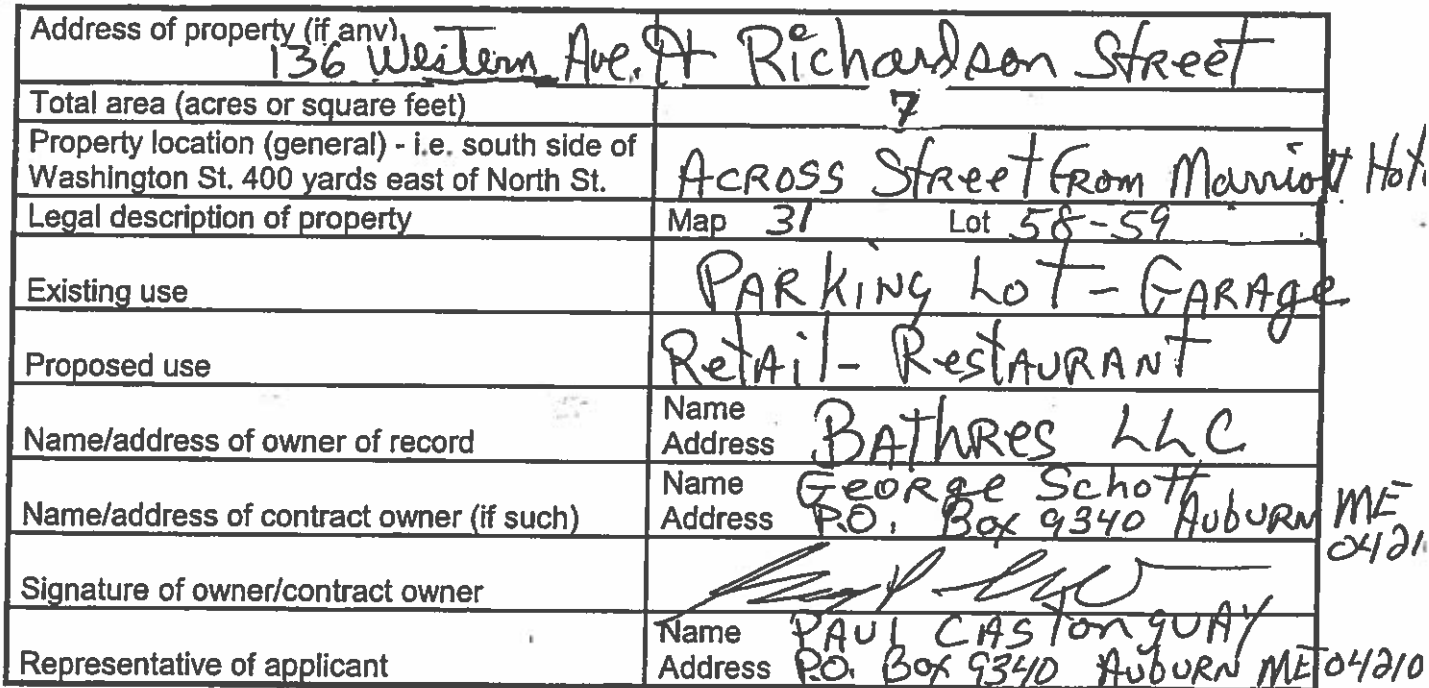 Address of property (if any)
136 Western Ave. At Richardson Street
Total area (acres or square feet) 7
Property location (general) - i.e. south side of
Washington St. 400 yards east of North St. Across Street from Marriott Hot
Legal description of property Map 31 Lot 58-59
Existing use PARKING LOT - GARAge
Proposed use RetAil - RestAURANT
Name/address of owner of record Name
Address BAThRes LLC
Name/address of contract owner (if such) Name GeoRge Schott
Address P.O. Box 9340 AubURN ME
0421
Signature of owner/contract owner
Representative of applicant Name PAUL CASTonguAY
Address P.O. Box 9340 AubURN ME 04210